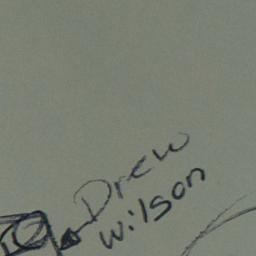 Drew
Wilson